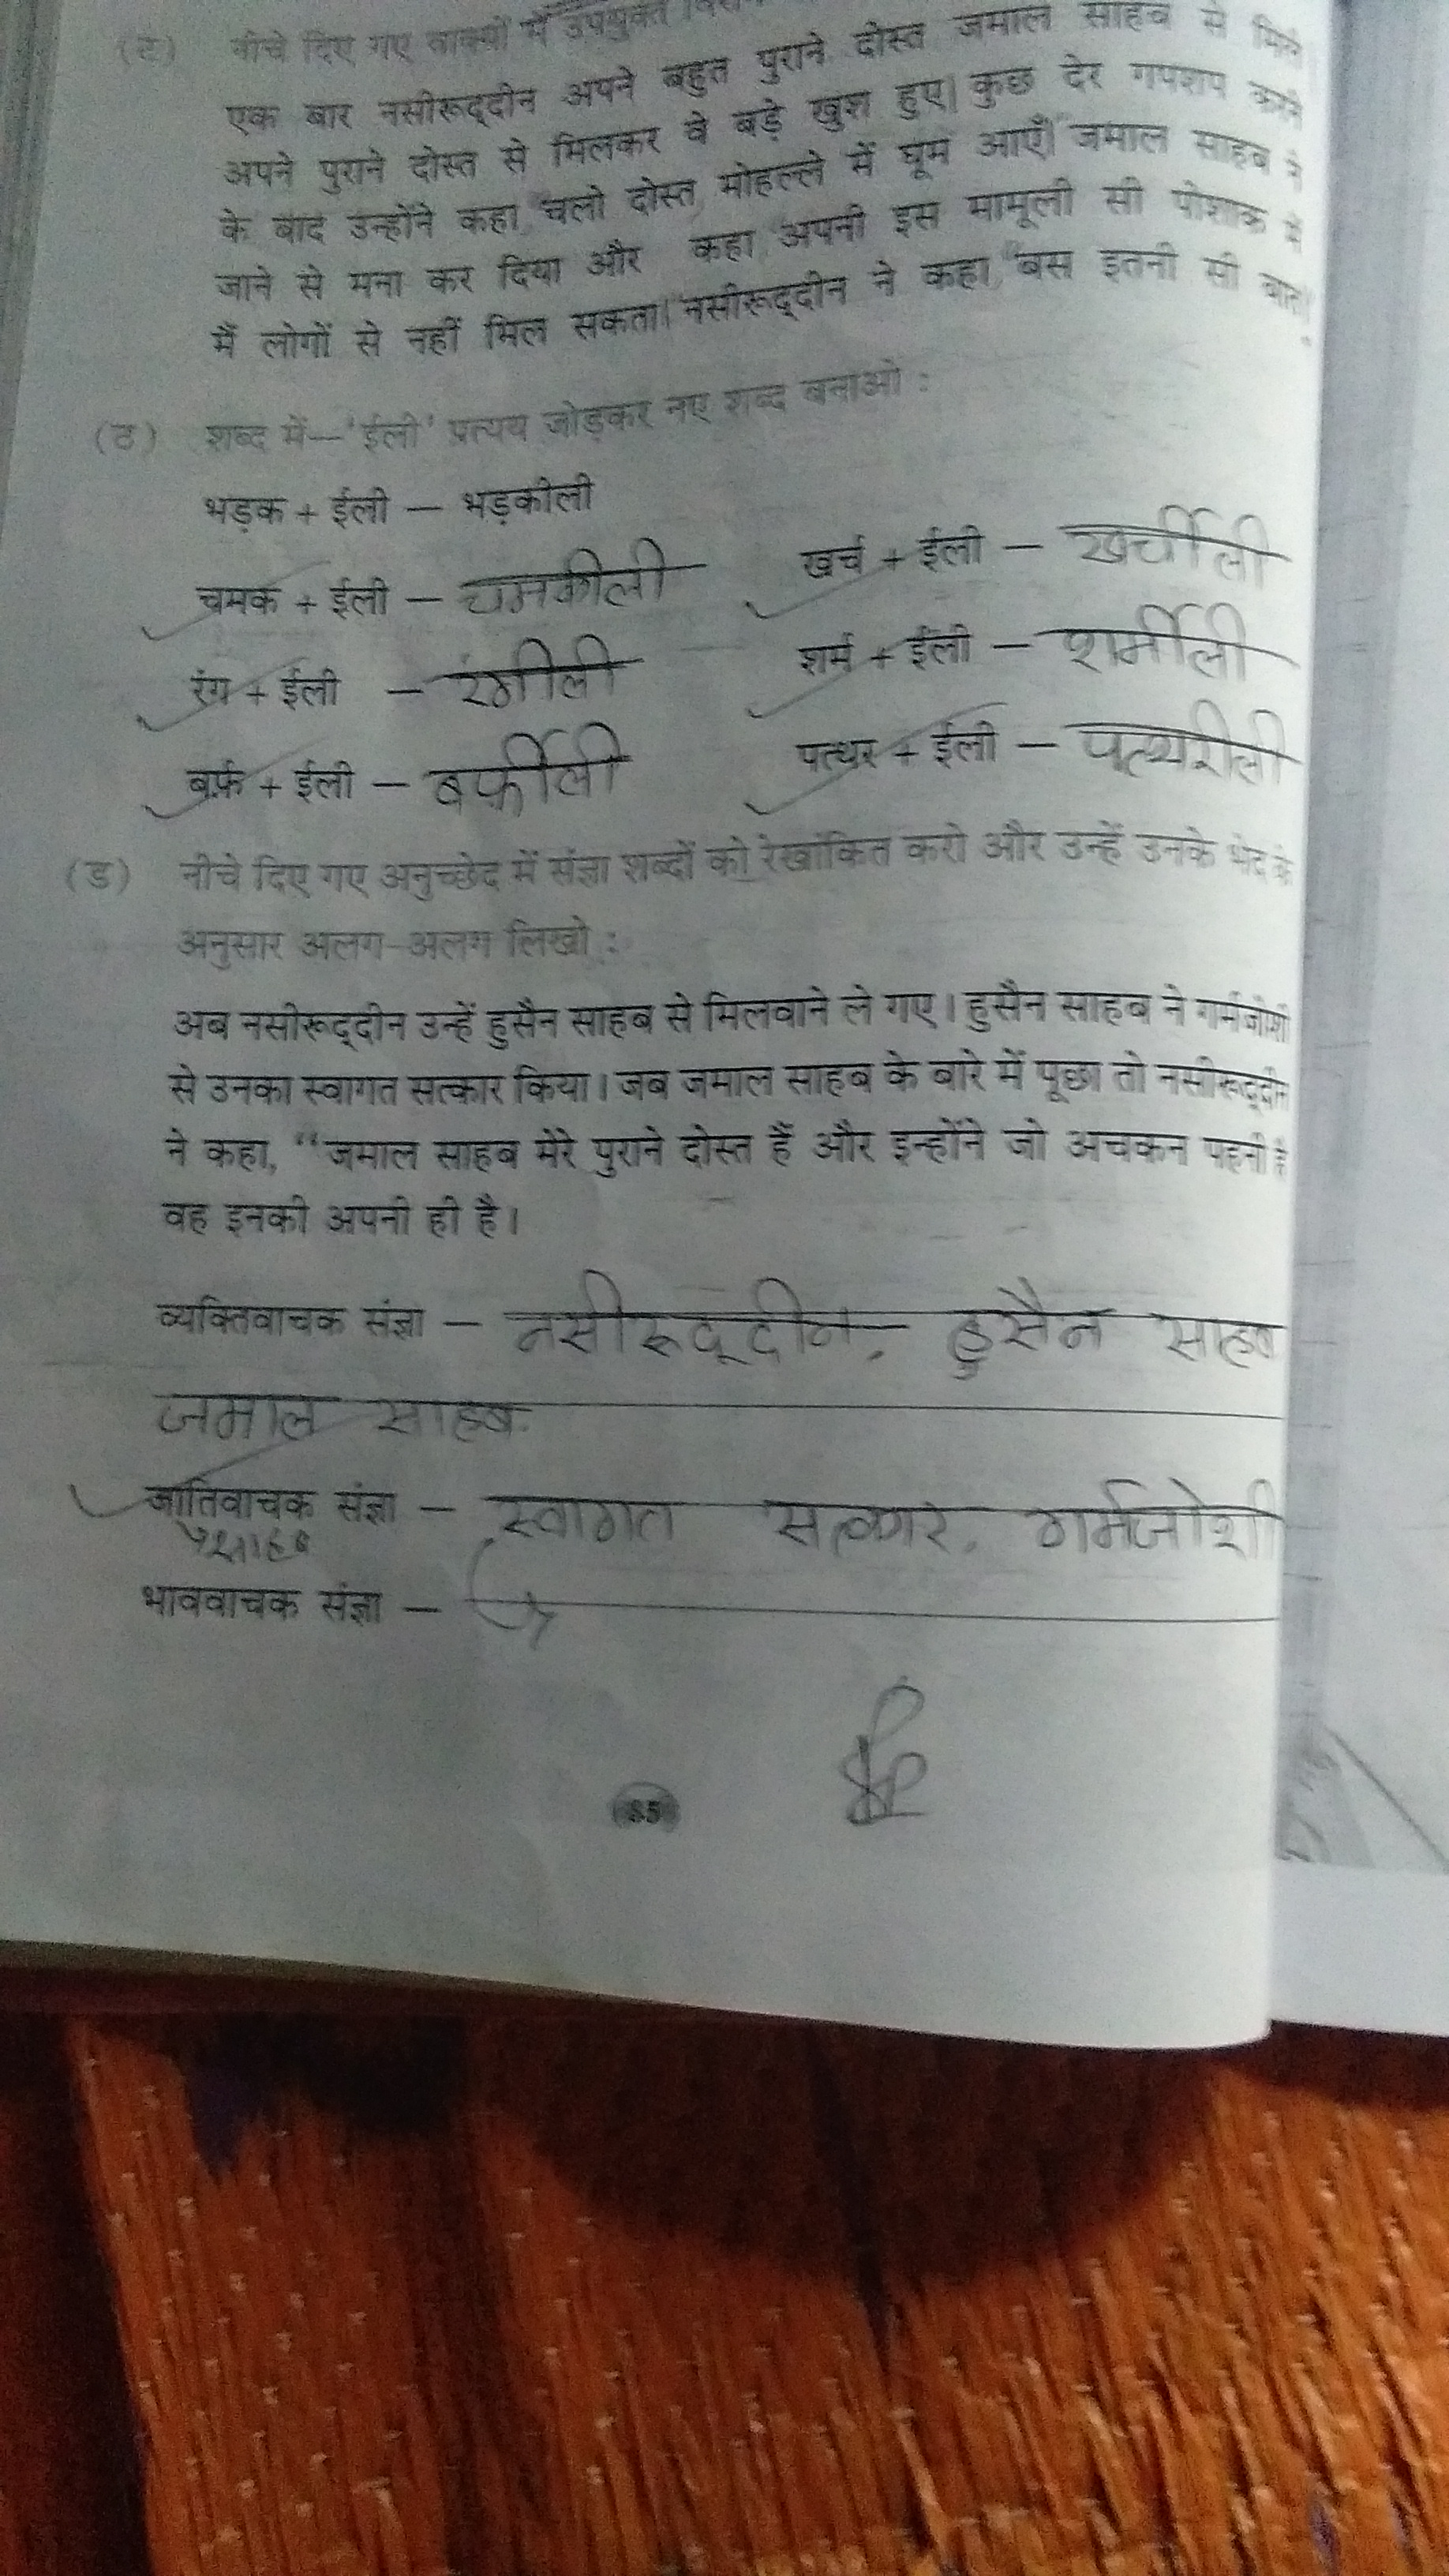 (ट) नीचे दिए गए वाक्यों में उपयुक्त
एक बार नसीरूद्‌दीन अपने बहुत पुराने दोस्त जमाल साहब से मिले
अपने पुराने दोस्त से मिलकर वे बड़े खुश हुए। कुछ देर गपशप करने
के बाद उन्होंने कहा, "चलो दोस्त, मोहल्ले में घूम आएँ।" जमाल साहब ने
जाने से मना कर दिया और कहा, "अपनी इस मामूली सी पोशाक में
मैं लोगों से नहीं मिल सकता।" नसीरूद्‌दीन ने कहा, "बस इतनी सी बात!"
(ठ) शब्द में—'ईली' प्रत्यय जोड़कर नए शब्द बनाओ :
भड़क + ईली — भड़कीली
चमक + ईली — चमकीली खर्च + ईली — खर्चीली
रंग + ईली — रंगीली शर्म + ईली — शर्मीली
बर्फ़ + ईली — बर्फ़ीली पत्थर + ईली — पत्थरीली
(ड) नीचे दिए गए अनुच्छेद में संज्ञा शब्दों को रेखांकित करो और उन्हें उनके भेद के
अनुसार अलग-अलग लिखो :
अब नसीरूद्‌दीन उन्हें हुसैन साहब से मिलवाने ले गए। हुसैन साहब ने गर्मजोशी
से उनका स्वागत सत्कार किया। जब जमाल साहब के बारे में पूछा तो नसीरूद्‌दीन
ने कहा, "जमाल साहब मेरे पुराने दोस्त हैं और इन्होंने जो अचकन पहनी है
वह इनकी अपनी ही है।
व्यक्तिवाचक संज्ञा — नसीरूद्‌दीन, हुसैन साहब
जमाल साहब
जातिवाचक संज्ञा — स्वागत सत्कार, गर्मजोशी
साहब
भाववाचक संज्ञा —
65